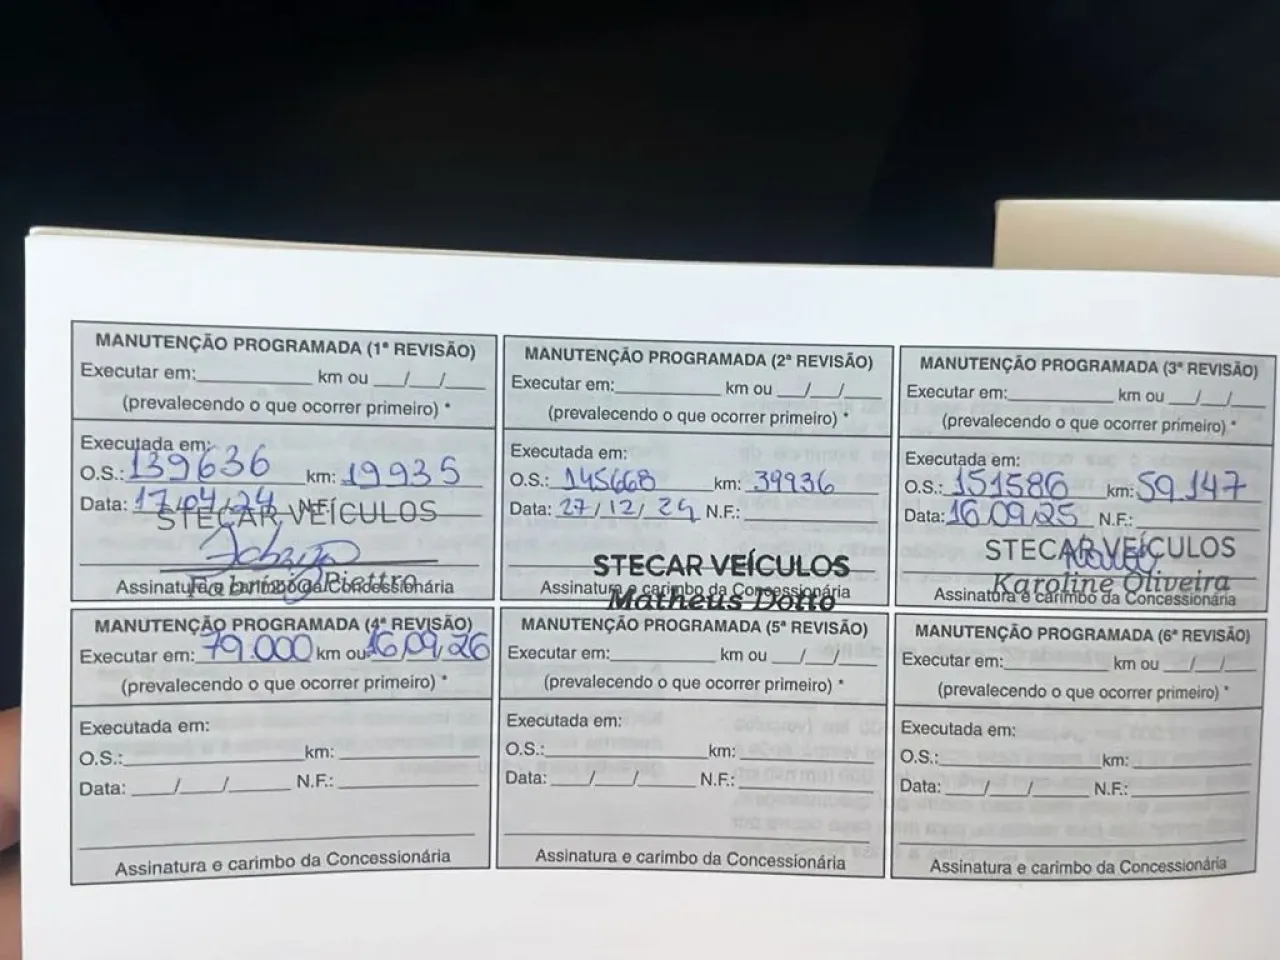 MANUTENÇÃO PROGRAMADA (1ª REVISÃO)
Executar em:__________ km ou ___/___/___
(prevalecendo o que ocorrer primeiro) *
Executada em:
O.S.: 139636 km: 19935
Data: 17/04/24 N.F.
STECAR VEÍCULOS
Fabrizio Piettro
Assinatura e carimbo da Concessionária
MANUTENÇÃO PROGRAMADA (2ª REVISÃO)
Executar em:__________ km ou ___/___/___
(prevalecendo o que ocorrer primeiro) *
Executada em:
O.S.: 145668 km: 39936
Data: 27/12/24 N.F.:
STECAR VEÍCULOS
Assinatura e carimbo da Concessionária
Matheus Dotto
MANUTENÇÃO PROGRAMADA (3ª REVISÃO)
Executar em:__________ km ou ___/___/___
(prevalecendo o que ocorrer primeiro) *
Executada em:
O.S.: 151586 km: 59.147
Data: 16/09/25 N.F.:
STECAR VEÍCULOS
Karoline Oliveira
Assinatura e carimbo da Concessionária
MANUTENÇÃO PROGRAMADA (4ª REVISÃO)
Executar em: 79.000 km ou 16/09/26
(prevalecendo o que ocorrer primeiro) *
Executada em:
O.S.:__________ km:
Data: ___/___/___ N.F.:
Assinatura e carimbo da Concessionária
MANUTENÇÃO PROGRAMADA (5ª REVISÃO)
Executar em:__________ km ou ___/___/___
(prevalecendo o que ocorrer primeiro) *
Executada em:
O.S.:__________ km:
Data: ___/___/___ N.F.:
Assinatura e carimbo da Concessionária
MANUTENÇÃO PROGRAMADA (6ª REVISÃO)
Executar em:__________ km ou ___/___/___
(prevalecendo o que ocorrer primeiro) *
Executada em:
O.S.:__________ km:
Data: ___/___/___ N.F.:
Assinatura e carimbo da Concessionária